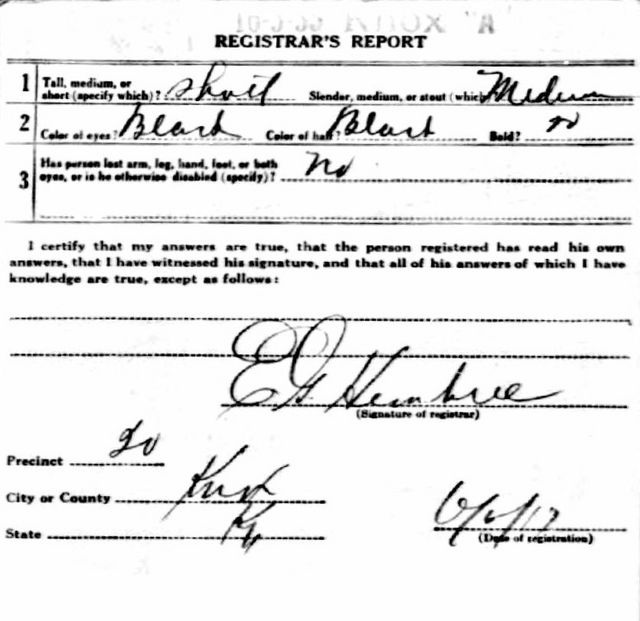 REGISTRAR'S REPORT
1 Tall, medium, or short (specify which)? Short Slender, medium, or stout (which)? Medium
2 Color of eyes? Black Color of hair? Black Bald? no
3 Has person lost arm, leg, hand, foot, or both
eyes, or is he otherwise disabled (specify)? No
I certify that my answers are true, that the person registered has read his own
answers, that I have witnessed his signature, and that all of his answers of which I have
knowledge are true, except as follows:
E G Hembree
(Signature of registrar)
Precinct 20
City or County Knox
State Ky
6/5/17
(Date of registration)